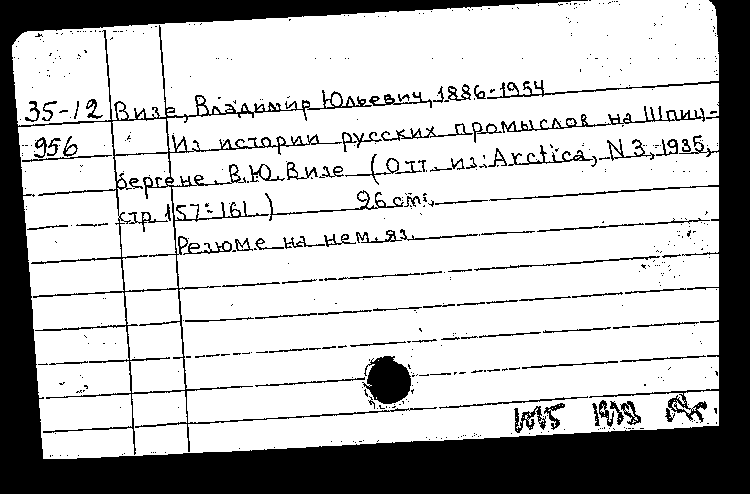 35-12 Визе, Владимир Юльевич, 1886-1954
956 Из истории русских промыслов на Шпиц-
бергене. В.Ю. Визе (Отт. из: Arctica, N 3, 1935,
стр. 157-161.) 26 cm.
Резюме на нем. яз.